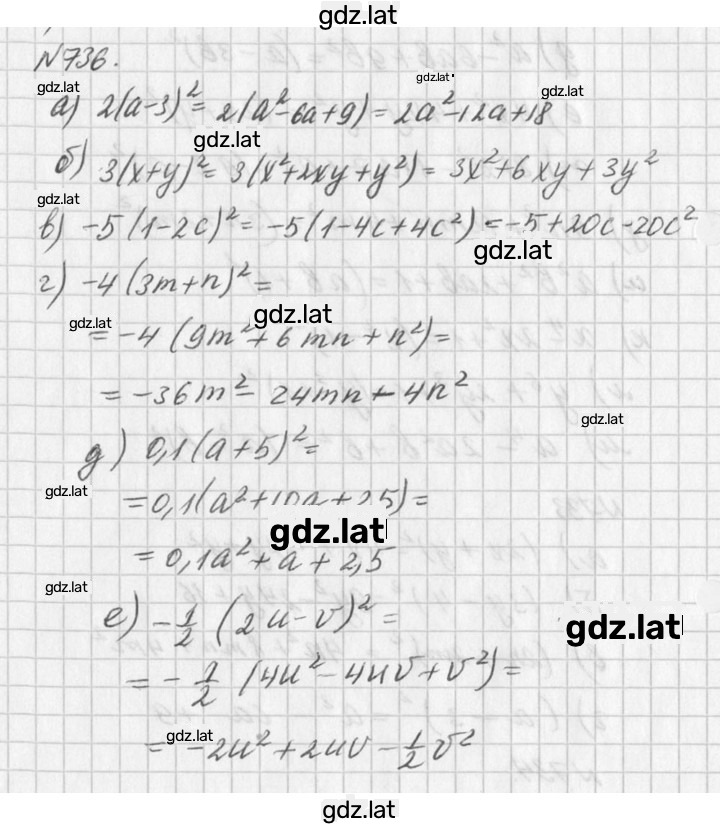 gdz.lat
№736.
gdz.lat gdz.lat gdz.lat
а) 2(a-3)² = 2(a²-6a+9) = 2a²-12a+18
gdz.lat
б) 3(x+y)² = 3(x²+2xy+y²) = 3x²+6xy+3y²
gdz.lat
в) -5(1-2c)² = -5(1-4c+4c²) = -5+20c-20c²
gdz.lat
г) -4(3m+n)² =
gdz.lat gdz.lat
= -4(9m²+6mn+n²) =
= -36m² - 24mn - 4n²
gdz.lat
д) 0,1(a+5)² =
gdz.lat
= 0,1(a²+10a+25) =
gdz.lat
= 0,1a²+a+2,5
gdz.lat
е) -1/2 (2u-v)² =
gdz.lat
= -1/2 (4u²-4uv+v²) =
gdz.lat
= -2u²+2uv-1/2v²
gdz.lat